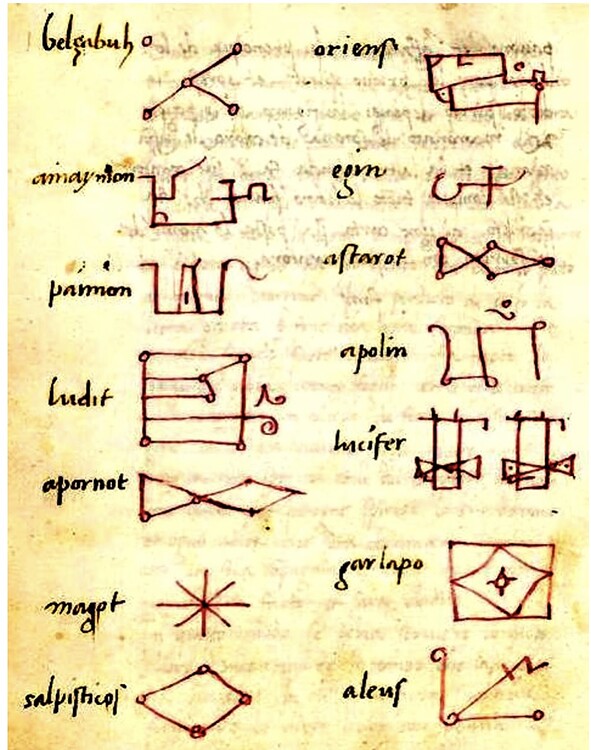 belçabuh
amaymon
paimon
ludit
apornot
magot
salpiſticoſ
orienſ
egin
aſtarot
apolin
lucifer
garlapo
aleuſ